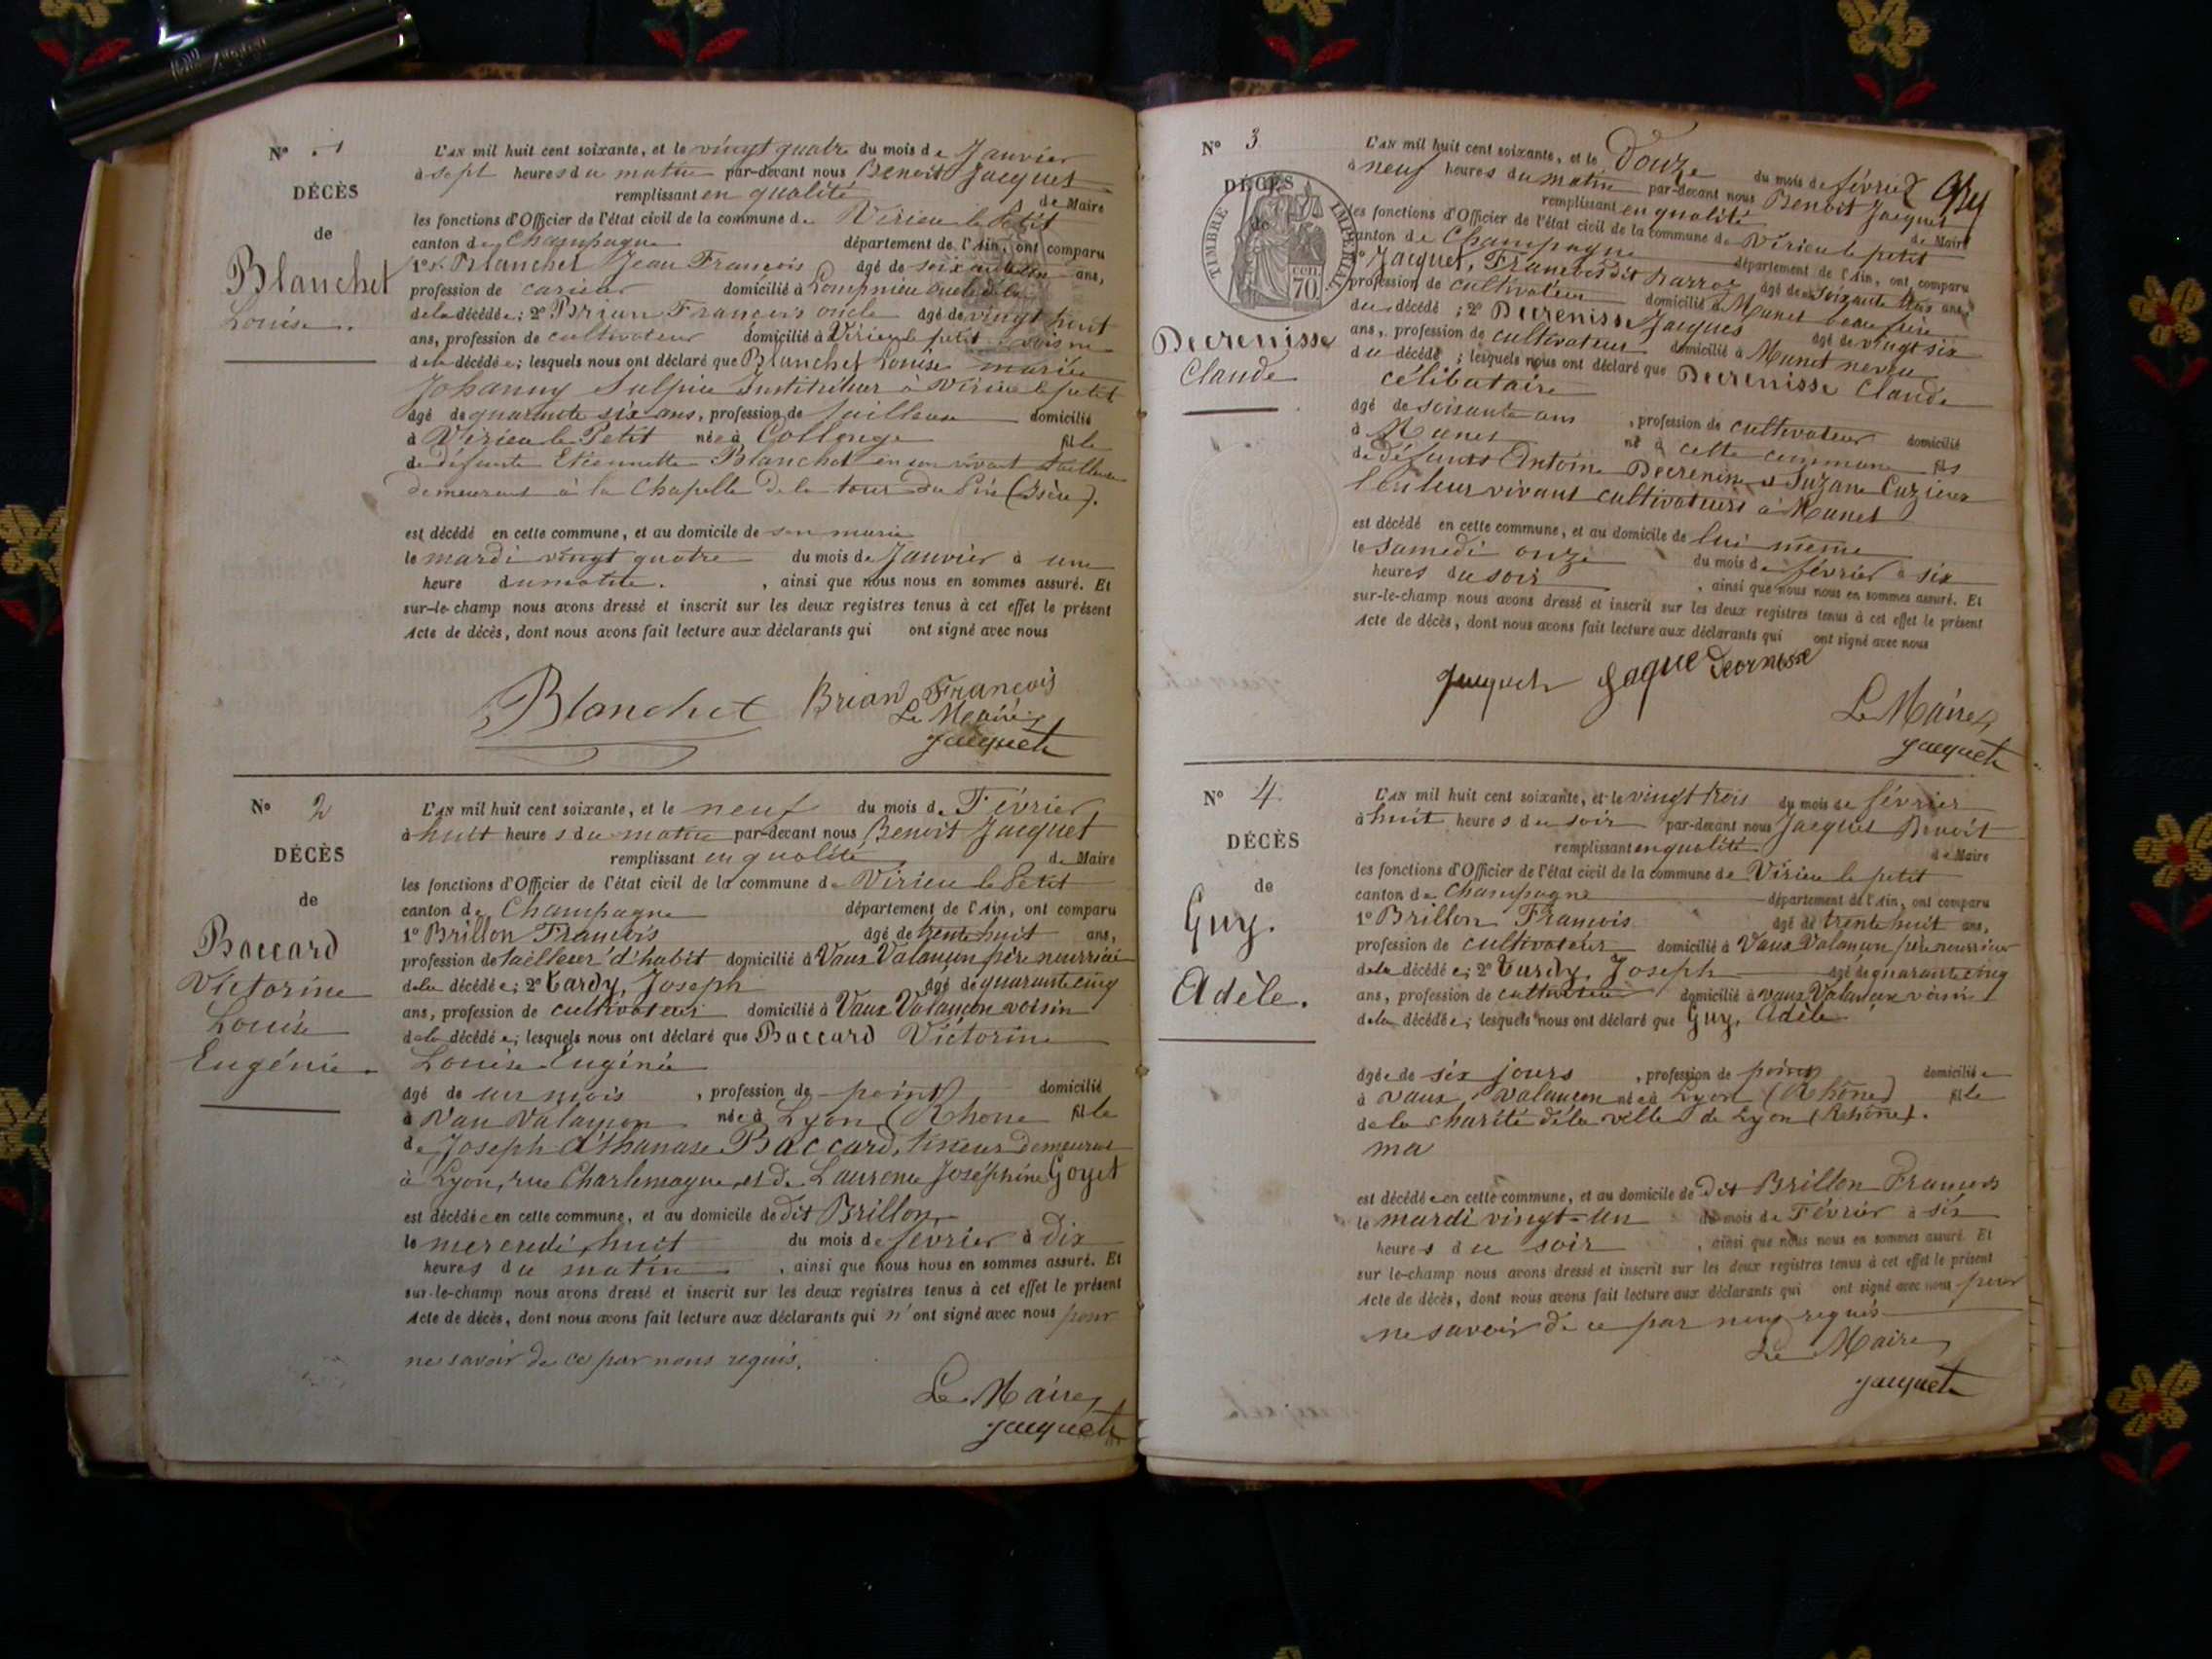 N° 1
DÉCÈS
de
Blanchet
Louise.
L'AN mil huit cent soixante, et le vingt quatre du mois de Janvier
à sept heures du matin par-devant nous Benoit Jacquet
remplissant en qualité de Maire
les fonctions d'Officier de l'état civil de la commune de Virieu le Petit
canton de Champagne département de l'Ain, ont comparu
1° Blanchet Jean François âgé de ans,
profession de domicilié à
de la décédée; 2° Brian François oncle âgé de vingt huit
ans, profession de cultivateur domicilié à Virieu le petit voisin
de la décédée; lesquels nous ont déclaré que Blanchet Louise mariée
Johanny Sulpice Instituteur à Virieu le petit
âgé de quarante six ans, profession de tailleuse domicilié
à Virieu le Petit née à Collonge fille
de défunte Etiennette Blanchet en son vivant tailleuse
demeurant à la Chapelle de la tour du Pin (Isère).
est décédé en cette commune, et au domicile de son marie
le mardi vingt quatre du mois de Janvier à une
heure du matin. , ainsi que nous nous en sommes assuré. Et
sur-le-champ nous avons dressé et inscrit sur les deux registres tenus à cet effet le présent
Acte de décès, dont nous avons fait lecture aux déclarants qui ont signé avec nous
Blanchet Brian François
Le Maire
Jacquet
N° 2
DÉCÈS
de
Baccard
Victorine
Louise
Eugénie.
L'AN mil huit cent soixante, et le neuf du mois de Février
à huit heures du matin par-devant nous Benoit Jacquet
remplissant en qualité de Maire
les fonctions d'Officier de l'état civil de la commune de Virieu le Petit
canton de Champagne département de l'Ain, ont comparu
1° Brillon François âgé de trente huit ans,
profession de tailleur d'habit domicilié à Vaux Valançon père nourricié
de la décédée; 2° Tardy, Joseph âgé de quarante cinq
ans, profession de cultivateur domicilié à Vaux Valançon voisin
de la décédée; lesquels nous ont déclaré que Baccard Victorine
Louise Eugénie
âgé de un mois , profession de point domicilié
à Vau Valançon née à Lyon (Rhone fille
de Joseph Athanase Baccard, demeurant
à Lyon, rue Charlemagne, et de Laurence Joséphine Goyet
est décédée en cette commune, et au domicile de dit Brillon
le mercredi huit du mois de février à dix
heures du matin , ainsi que nous nous en sommes assuré. Et
sur-le-champ nous avons dressé et inscrit sur les deux registres tenus à cet effet le présent
Acte de décès, dont nous avons fait lecture aux déclarants qui n'ont signé avec nous pour
ne savoir de ce par nous requis.
Le Maire
Jacquet
N° 3
DÉCÈS
de
TIMBRE IMPÉRIAL
70 cen.
Decrenisse
Claude
L'AN mil huit cent soixante, et le Douze du mois de février
à neuf heures du matin par-devant nous Benoit Jacquet
remplissant en qualité de Maire
les fonctions d'Officier de l'état civil de la commune de Virieu le petit
canton de Champagne département de l'Ain, ont comparu
1° Jacquet, François dit âgé de soixante trois ans,
profession de cultivateur domicilié à Munet beau frère
du décédé; 2° Decrenisse Jacques âgé de vingt six
ans, profession de cultivateur domicilié à Munet neveu
du décédé; lesquels nous ont déclaré que Decrenisse Claude
célibataire
âgé de soisante ans , profession de cultivateur domicilié
à Munet né à cette commune fils
de défunts Antoine Decrenisse et Suzane Cuzieux
leur vivant cultivateurs à Munet
est décédé en cette commune, et au domicile de lui même
le samedi onze du mois de février à six
heures du soir , ainsi que nous nous en sommes assuré. Et
sur-le-champ nous avons dressé et inscrit sur les deux registres tenus à cet effet le présent
Acte de décès, dont nous avons fait lecture aux déclarants qui ont signé avec nous
Jacquet
Le Maire
Jacquet
N° 4
DÉCÈS
de
Guy.
Adèle.
L'AN mil huit cent soixante, et le vingt trois du mois de février
à huit heures du soir par-devant nous Jacquet Benoit
remplissant en qualité de Maire
les fonctions d'Officier de l'état civil de la commune de Virieu le petit
canton de Champagne département de l'Ain, ont comparu
1° Brillon François âgé de trente huit ans,
profession de cultivateur domicilié à Vaux Valançon père nourricier
de la décédée; 2° Tardy, Joseph âgé de quarante cinq
ans, profession de cultivateur domicilié à Vaux Valançon voisin
de la décédée; lesquels nous ont déclaré que Guy, Adèle
âgée de six jours , profession de point domiciliée
à Vaux Valançon née à Lyon (Rhône) fille
de la charité de la ville de Lyon (Rhône).
ma
est décédée en cette commune, et au domicile de dit Brillon François
le mardi vingt-un du mois de Février à six
heures du soir , ainsi que nous nous en sommes assuré. Et
sur le-champ nous avons dressé et inscrit sur les deux registres tenus à cet effet le présent
Acte de décès, dont nous avons fait lecture aux déclarants qui ont signé avec nous pour
ne savoir de ce par nous requis
Le Maire
Jacquet